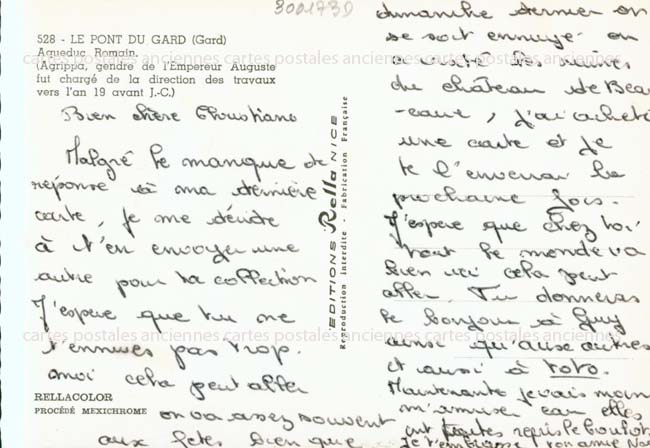 3001730
528 - LE PONT DU GARD (Gard)
Aqueduc Romain.
(Agrippa, gendre de l'Empereur Auguste
fut chargé de la direction des travaux
vers l'an 19 avant J.-C.)
Bien chère Christiane
Malgré le manque de
réponse à ma dernière
carte, je me décide
à t'en envoyer une
autre pour ta collection
J'espère que tu ne
t'ennuies pas trop.
moi cela peut aller
on va assez souvent
aux fêtes bien que
RELLACOLOR
PROCÉDÉ MEXICHROME
EDITIONS Rella NICE
Reproduction interdite - Fabrication Française
dimanche dernier on
se soit ennuyé on
a visité les ruines
du château de Beau
-caire, j'ai acheté
une carte et je
te l'enverrai la
prochaine fois.
J'espère que chez toi
tout le monde va
bien ici cela peut
aller. Tu donneras
le bonjour à Guy
ainsi qu'aux autres
et aussi à toto.
Maintenant je vais moins
m'amuser car elles
ont toutes repris le boulot
Je t'embrasse
cartes postales anciennes cartes postales anciennes cartes postales anciennes
cartes postales anciennes cartes postales anciennes cartes postales anciennes